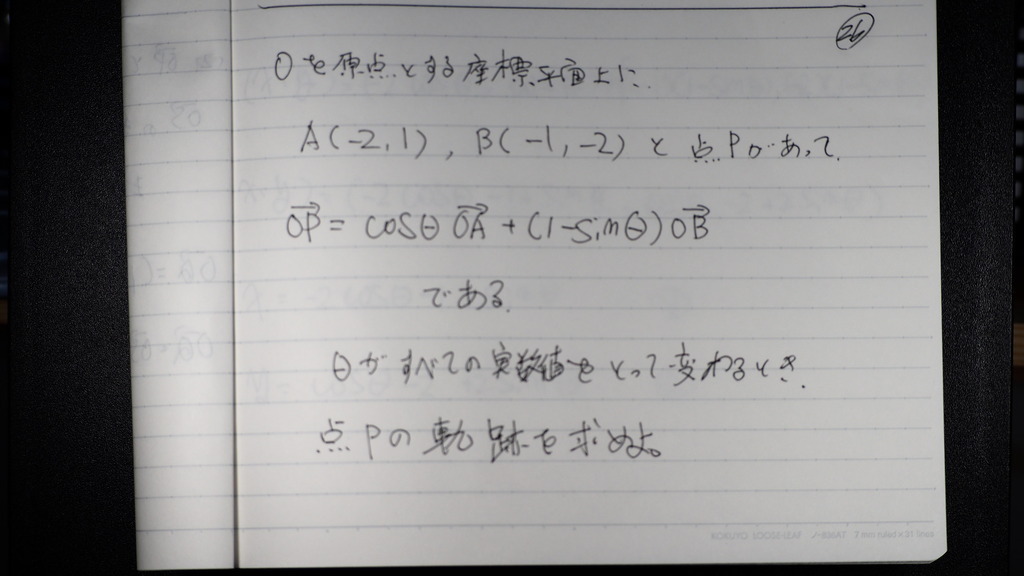 26
Oを原点とする座標平面上に、
A(-2,1), B(-1,-2) と 点Pがあって、
OP→ = cosθ OA→ + (1-sinθ) OB→
である。
θがすべての実数値をとって変わるとき、
点Pの軌跡を求めよ。
KOKUYO LOOSE-LEAF ノ-836AT 7 mm ruled × 31 lines